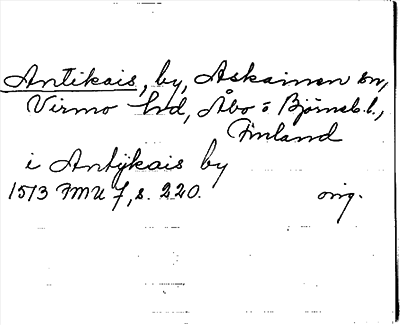 Antikais, by, Askainen sn,
Virmo hd, Åbo o Björneb. l.,
Finland
i Antÿkais by
1513 FMU 7, s. 220. orig.